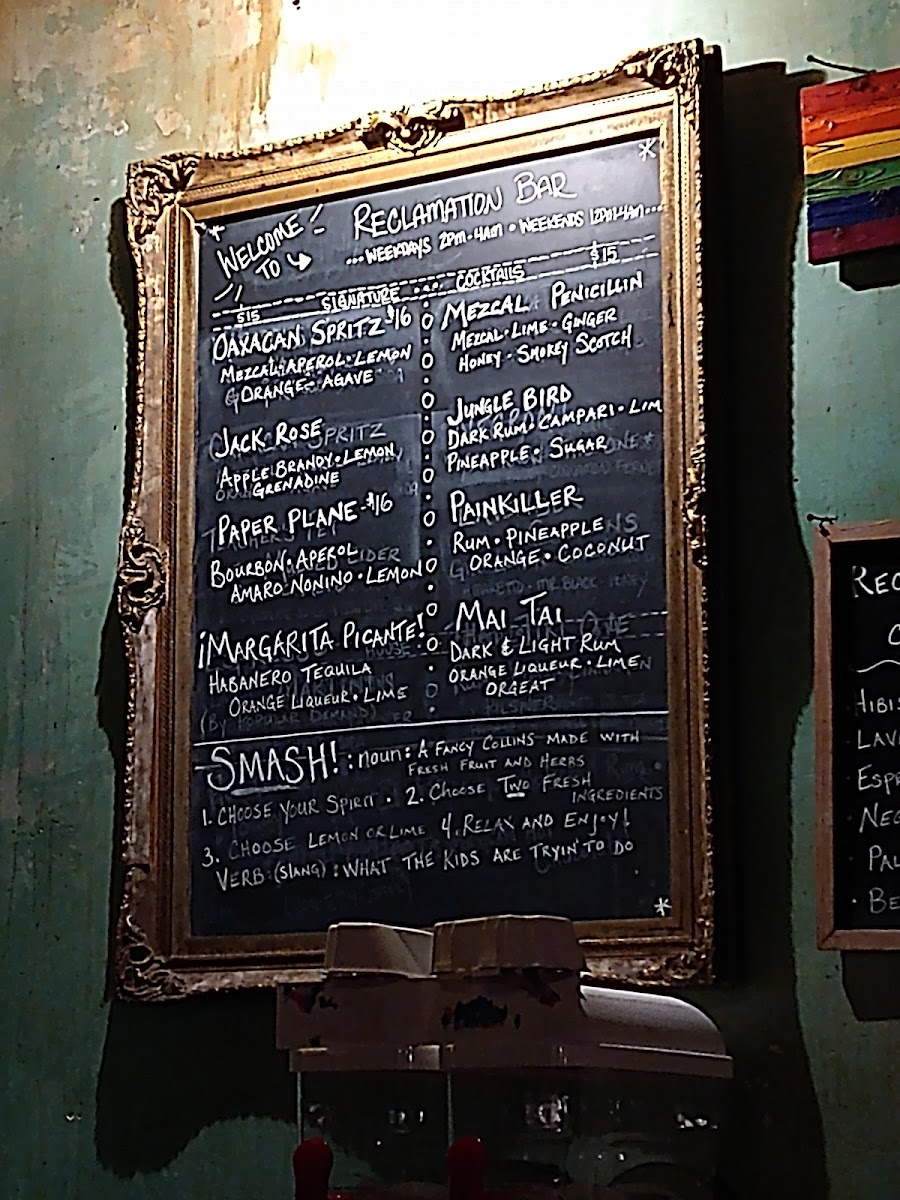 WELCOME
TO
RECLAMATION BAR
...WEEKDAYS 2PM-4AM • WEEKENDS 12PM-4AM...
$15 SIGNATURE COCKTAILS $15
OAXACAN SPRITZ-$16
MEZCAL • APEROL • LEMON
ORANGE - AGAVE
JACK ROSE
APPLE BRANDY • LEMON
GRENADINE
PAPER PLANE-$16
BOURBON • APEROL
AMARO NONINO • LEMON
¡MARGARITA PICANTE!
HABANERO TEQUILA
ORANGE LIQUEUR • LIME
MEZCAL PENICILLIN
MEZCAL • LIME • GINGER
HONEY - SMOKEY SCOTCH
JUNGLE BIRD
DARK RUM • CAMPARI • LIM
PINEAPPLE • SUGAR
PAINKILLER
RUM • PINEAPPLE
ORANGE • COCONUT
MAI TAI
DARK & LIGHT RUM
ORANGE LIQUEUR • LIME
ORGEAT
SMASH! : noun : A FANCY COLLINS MADE WITH
FRESH FRUIT AND HERBS
1. CHOOSE YOUR SPIRIT • 2. CHOOSE TWO FRESH
INGREDIENTS
3. CHOOSE LEMON OR LIME 4. RELAX AND ENJOY!
VERB: (SLANG) : WHAT THE KIDS ARE TRYIN' TO DO
REC
C
HIBIS
• LAV
• ESPR
• NEG
• PAL
• BE